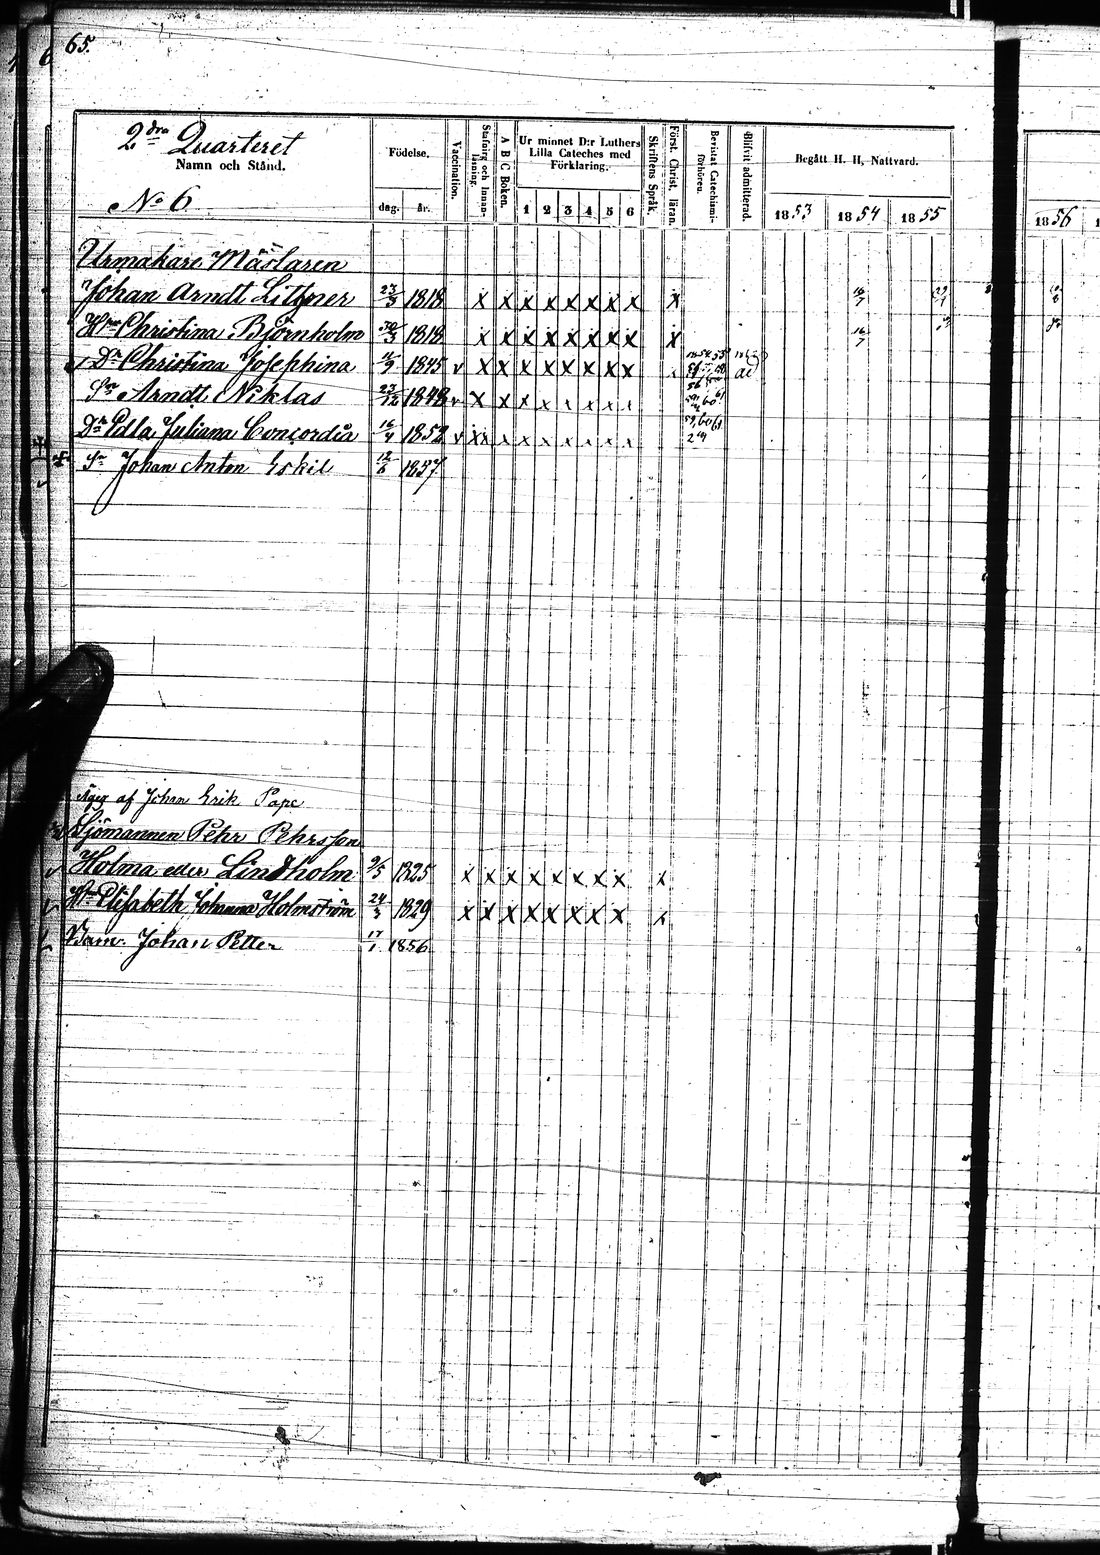 65.
2dra Quarteret
Namn och Stånd.
No 6
Födelse.
dag. år.
Vaccination.
Stafning och Innanläsning.
A B C Boken.
Ur minnet D:r Luthers
Lilla Cateches med
Förklaring.
1 2 3 4 5 6
Skriftens Språk.
Först. Christ. läran.
Bevistat Catechismiförhören.
Blifvit admitterad.
Begått H. H. Nattvard.
1853 1854 1855 1856
Urmakare Mästaren
Johan Arndt Littzner 23/3 1818 x x x x x x x x x 16/7
Hn Christina Björnholm 30/3 1818 x x x x x x x x x 16/7
Dr Christina Josephina 11/9 1845 v x x x x x x x x
Sn Arndt Niklas 23/12 1848 v x x x x x x x x
Dr Edla Juliana Concordia 16/4 1852 v x x x x x x x x
Sn Johan Anton Eskil 12/6 1857
äges af Johan Erik Pape
Sjömannen Pehr Pehrsson
Holma eller Lindholm 9/5 1825 x x x x x x x x x
Hn Elisabeth Johanna Holmström 24/3 1829 x x x x x x x x x
Barn: Johan Petter 17/1 1856